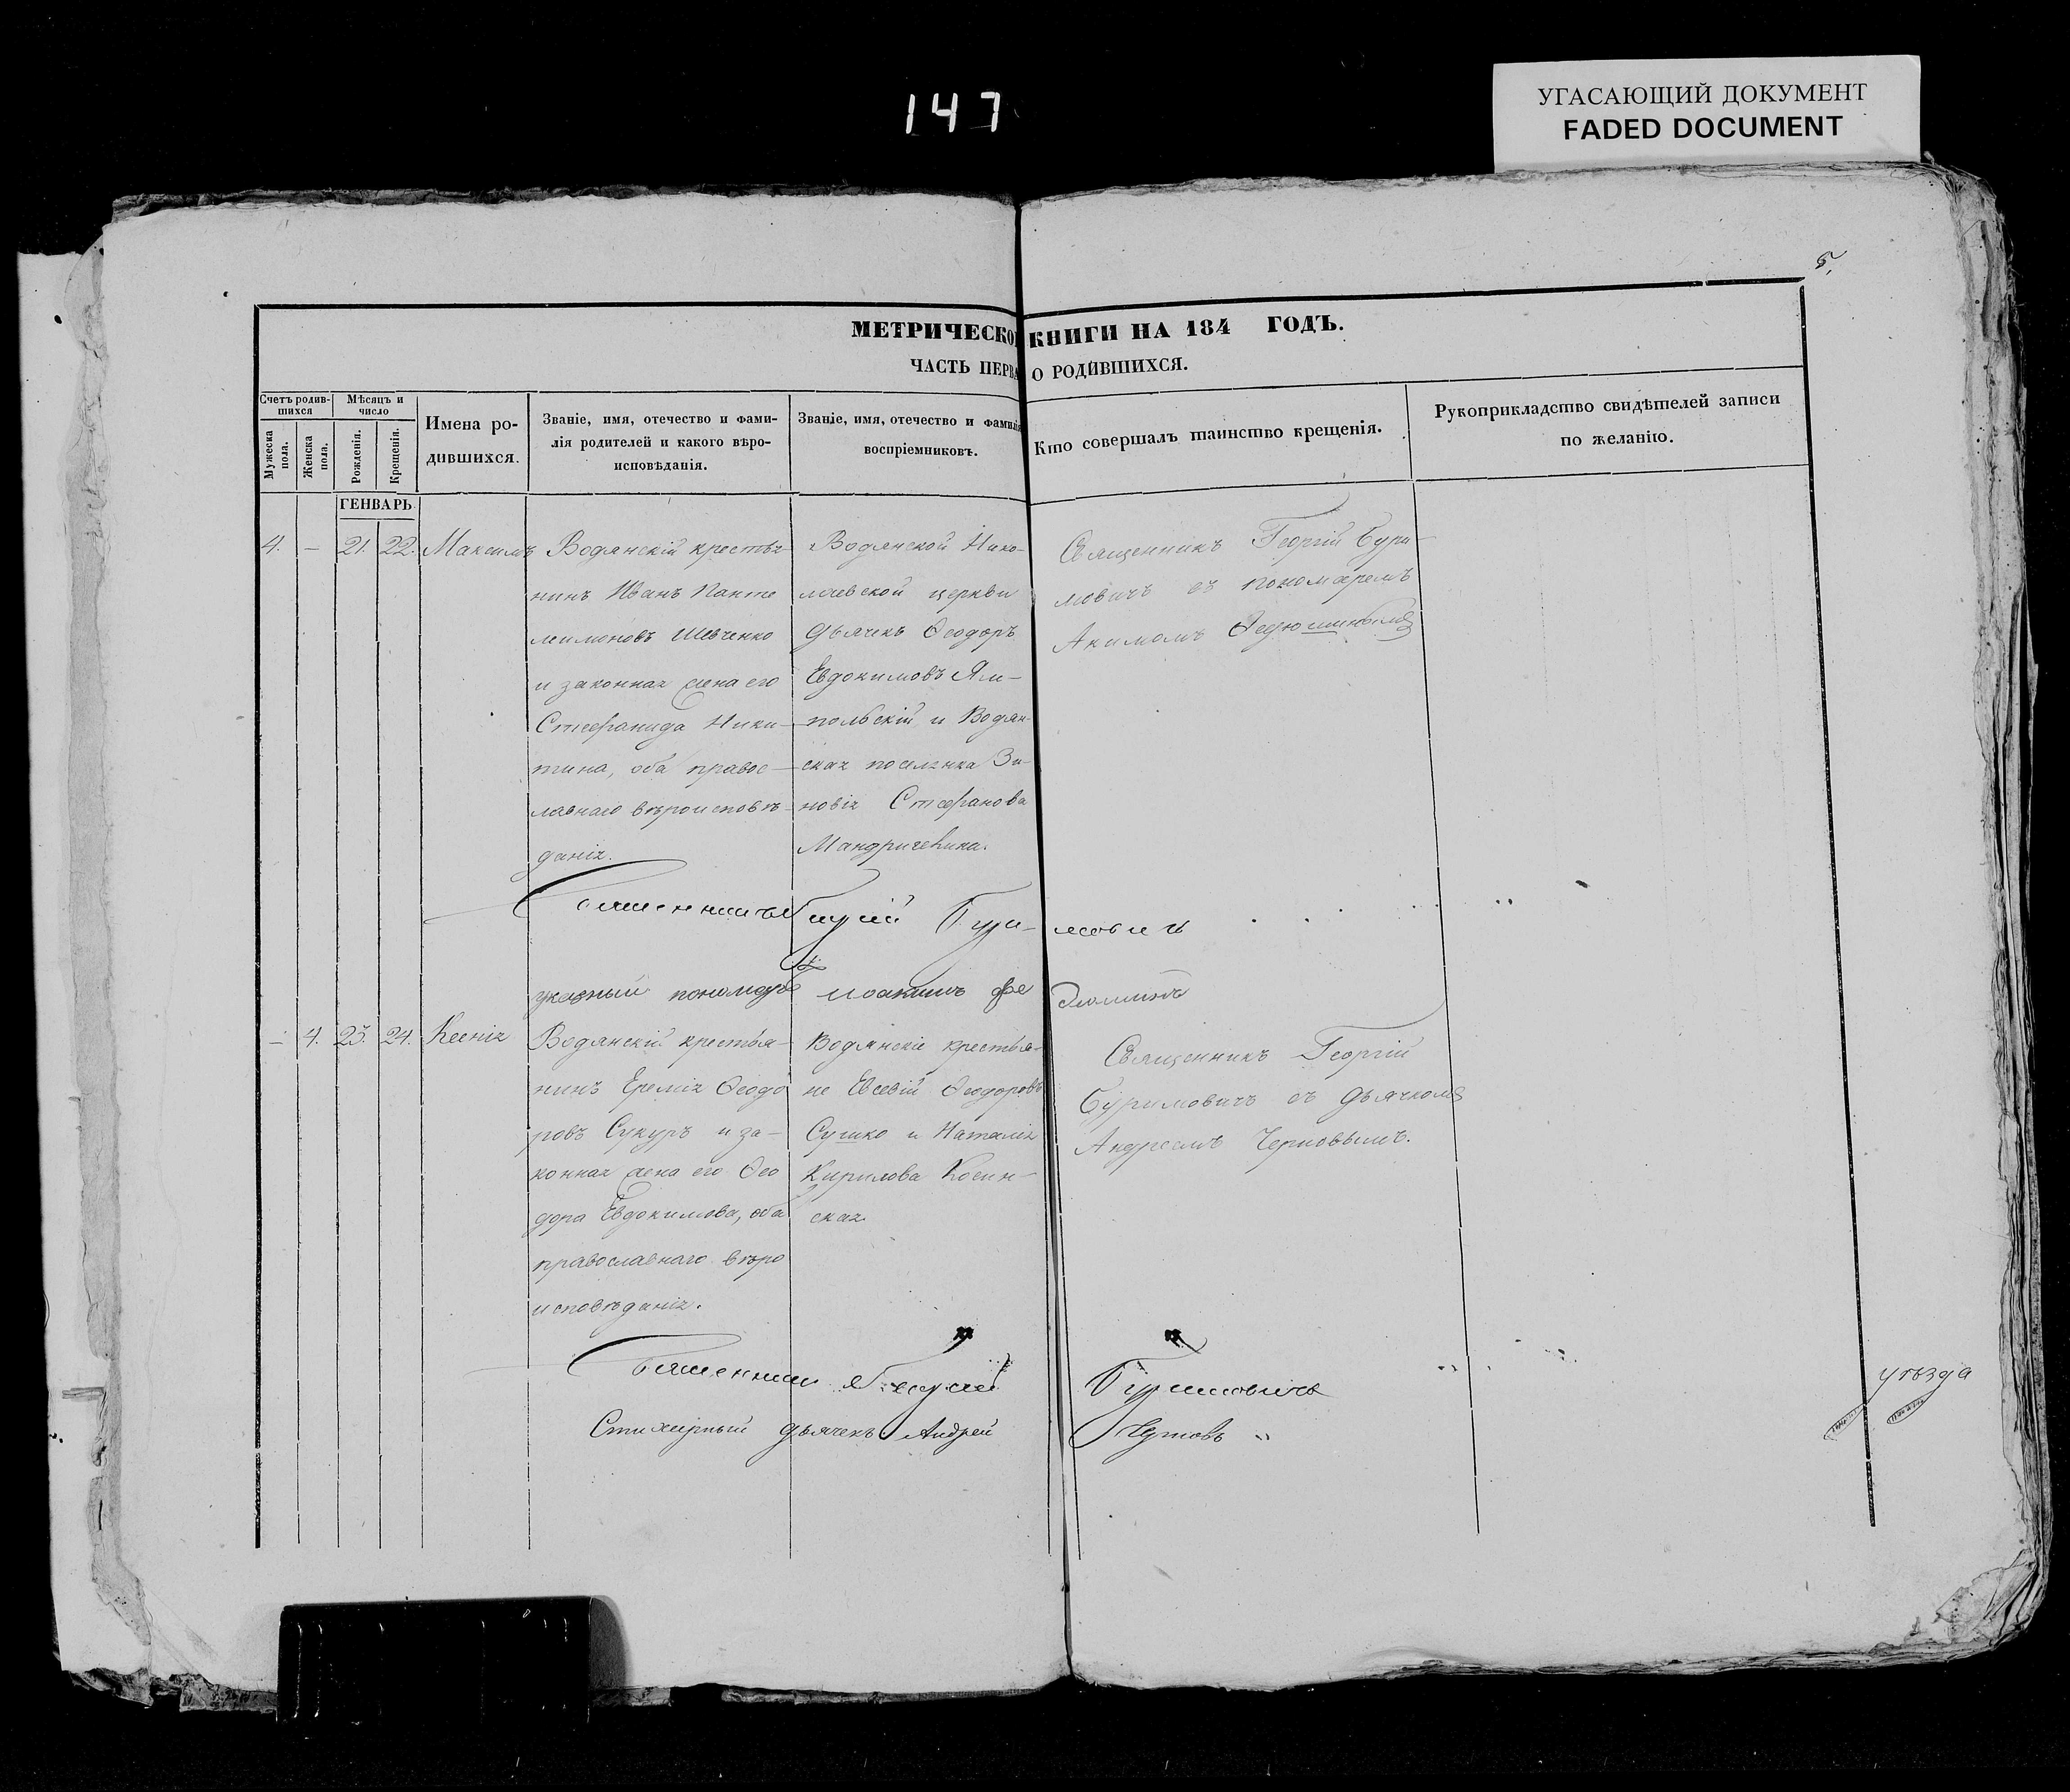 147
УГАСАЮЩИЙ ДОКУМЕНТ
FADED DOCUMENT
5,
МЕТРИЧЕСКО КНИГИ НА 184 ГОДЪ.
ЧАСТЬ ПЕРВА О РОДИВШИХСЯ.
Счетъ родив-
шихся
Мужеска пола.
Женска пола.
Мѣсяцъ и
число
Рожденія.
Крещенія.
Имена ро-
дившихся.
Званіе, имя, отечество и фами-
лія родителей и какого вѣро-
исповѣданія.
Званіе, имя, отечество и фамилія
воспріемниковъ.
Кто совершалъ таинство крещенія.
Рукоприкладство свидѣтелей записи
по желанію.
ГЕНВАРЬ.
4. — 21. 22. Максимъ
Водянскій крестья-
нинъ Иванъ Панте
леимоновъ Шевченко
и законная жена его
Стефанида Ники-
тина, оба правос-
лавнаго вѣроисповѣ-
данія.
Водянской Нико-
лаевской церкви
дьячекъ Ѳеодоръ
Евдокимовъ Ям-
польскій и Водян-
ская поселянка Зи-
новія Стефанова
Мандричевина.
Священникъ Георгій Бури-
мовичъ съ пономаремъ
Акимомъ Ѳедюшинымъ
Священникъ Георгій Бури-мовичъ
указный пономарь Иоакимъ Фе дюшинъ
— 4. 23. 24. Ксенія
Водянскій крестья-
нинъ Еремія Ѳеодо
ровъ Сукуръ и за-
конная жена его Ѳео
дора Евдокимова, оба
православнаго вѣро
исповѣданія.
Водянскіе крестья-
не Евсевій Ѳеодоровъ
Сушко и Наталія
Кирилова Косин-
ская.
Священникъ Георгій
Буримовичъ съ дьячкомъ
Андреемъ Черновымъ.
Священникъ Георгій Буримовичъ
Стихирный дьячекъ Андрей Черновъ
уѣзда